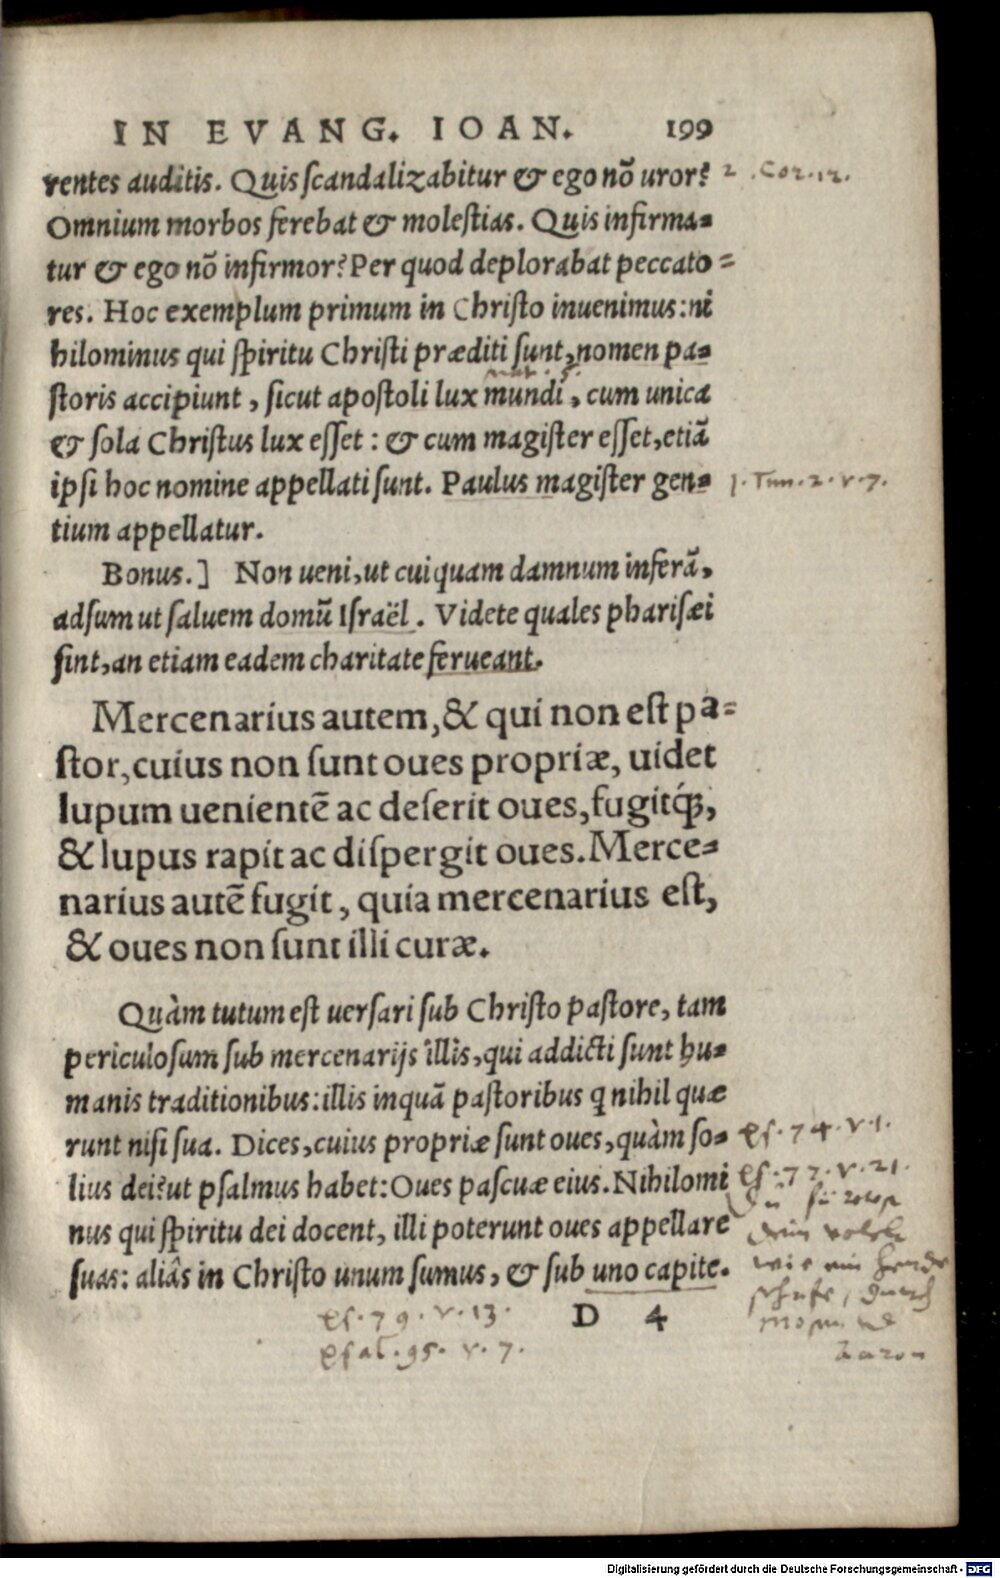 IN EVANG. IOAN. 199
rentes auditis. Quis scandalizabitur & ego nō uror? 2. Cor. 12.
Omnium morbos ferebat & molestias. Quis infirma-
tur & ego nō infirmor? Per quod deplorabat peccato=
res. Hoc exemplum primum in Christo inuenimus: ni
hilominus qui spiritu Christi præditi sunt, nomen pa-
mat. 5.
storis accipiunt, sicut apostoli lux mundi, cum unica
& sola Christus lux esset: & cum magister esset, etiā
ipsi hoc nomine appellati sunt. Paulus magister gen- 1. Tim. 2. v. 7.
tium appellatur.
Bonus.] Non ueni, ut cuiquam damnum inferā,
adsum ut saluem domū Israël. Videte quales pharisæi
sint, an etiam eadem charitate ferueant.
Mercenarius autem, & qui non est pa=
stor, cuius non sunt oues propriæ, uidet
lupum uenientē ac deserit oues, fugitq́;,
& lupus rapit ac dispergit oues. Merce-
narius autē fugit, quia mercenarius est,
& oues non sunt illi curæ.
Quàm tutum est uersari sub Christo pastore, tam
periculosum sub mercenarijs illis, qui addicti sunt hu-
manis traditionibus: illis inquā pastoribus q nihil quæ
runt nisi sua. Dices, cuius propriæ sunt oues, quàm so- Ps. 74. v. 1.
lius dei? ut psalmus habet: Oues pascuæ eius. Nihilomi Ps. 77. v. 21.
nus qui spiritu dei docent, illi poterunt oues appellare
suas: aliâs in Christo unum sumus, & sub uno capite.
dein volck
wie ein herde
schafe, durch
Aaron
Ps. 79. v. 13. D 4
Psal. 95. v. 7.
Digitalisierung gefördert durch die Deutsche Forschungsgemeinschaft - DFG